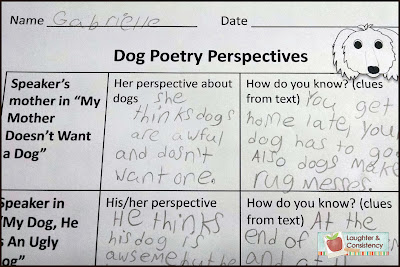 Name Gabrielle Date
Dog Poetry Perspectives
Speaker's
mother in "My
Mother
Doesn't Want
a Dog"
Her perspective about
dogs she
thinks dogs
are awful
and dosn't
want one.
How do you know? (clues
from text) You get
home late, your
dog has to go
Also dogs make
rug messes.
Speaker in
"My Dog, He
Is An Ugly
Dog"
His/her perspective
He thinks
his dog is
awseme but he
How do you know? (clues
from text) At the
end of
and at
Laughter &
Consistency